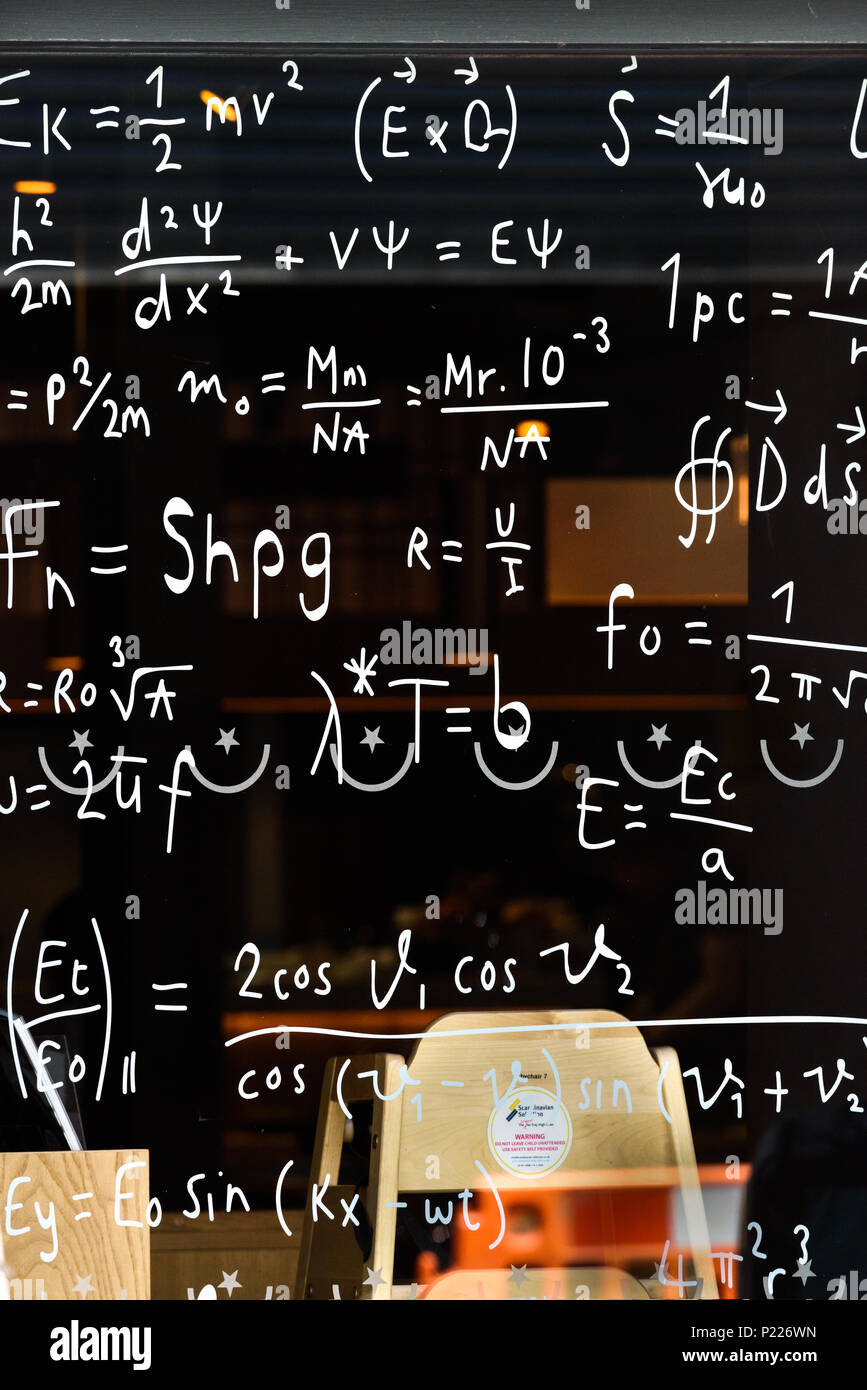 Ek = 1/2 mv² (E⃗ × B⃗) S⃗ = 1/μμ₀
h²/2m d²Ψ/dx² + VΨ = EΨ
1pc = 1A/r
= P²/2m m₀ = Mm/NA = Mr.10⁻³/NA
∯ D⃗ ds⃗
Fn = Shρg R = U/I
f₀ = 1/2π√
R = R₀ ³√A λ*T = b
ω = 2πf E = Ec/a
(Et/E₀)∥ = 2cos ϑ₁ cos ϑ₂ / cos(ϑ₁ - ϑ₂) sin(ϑ₁ + ϑ₂
WARNING
DO NOT LEAVE CHILD UNATTENDED
USE SAFETY BELT PROVIDED
Ey = E₀ sin (Kx - wt)
4π² r³
alamy
Image ID: P226WN
www.alamy.com